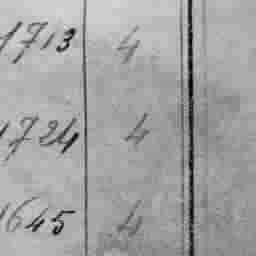 1713 4
1724 4
1645 4